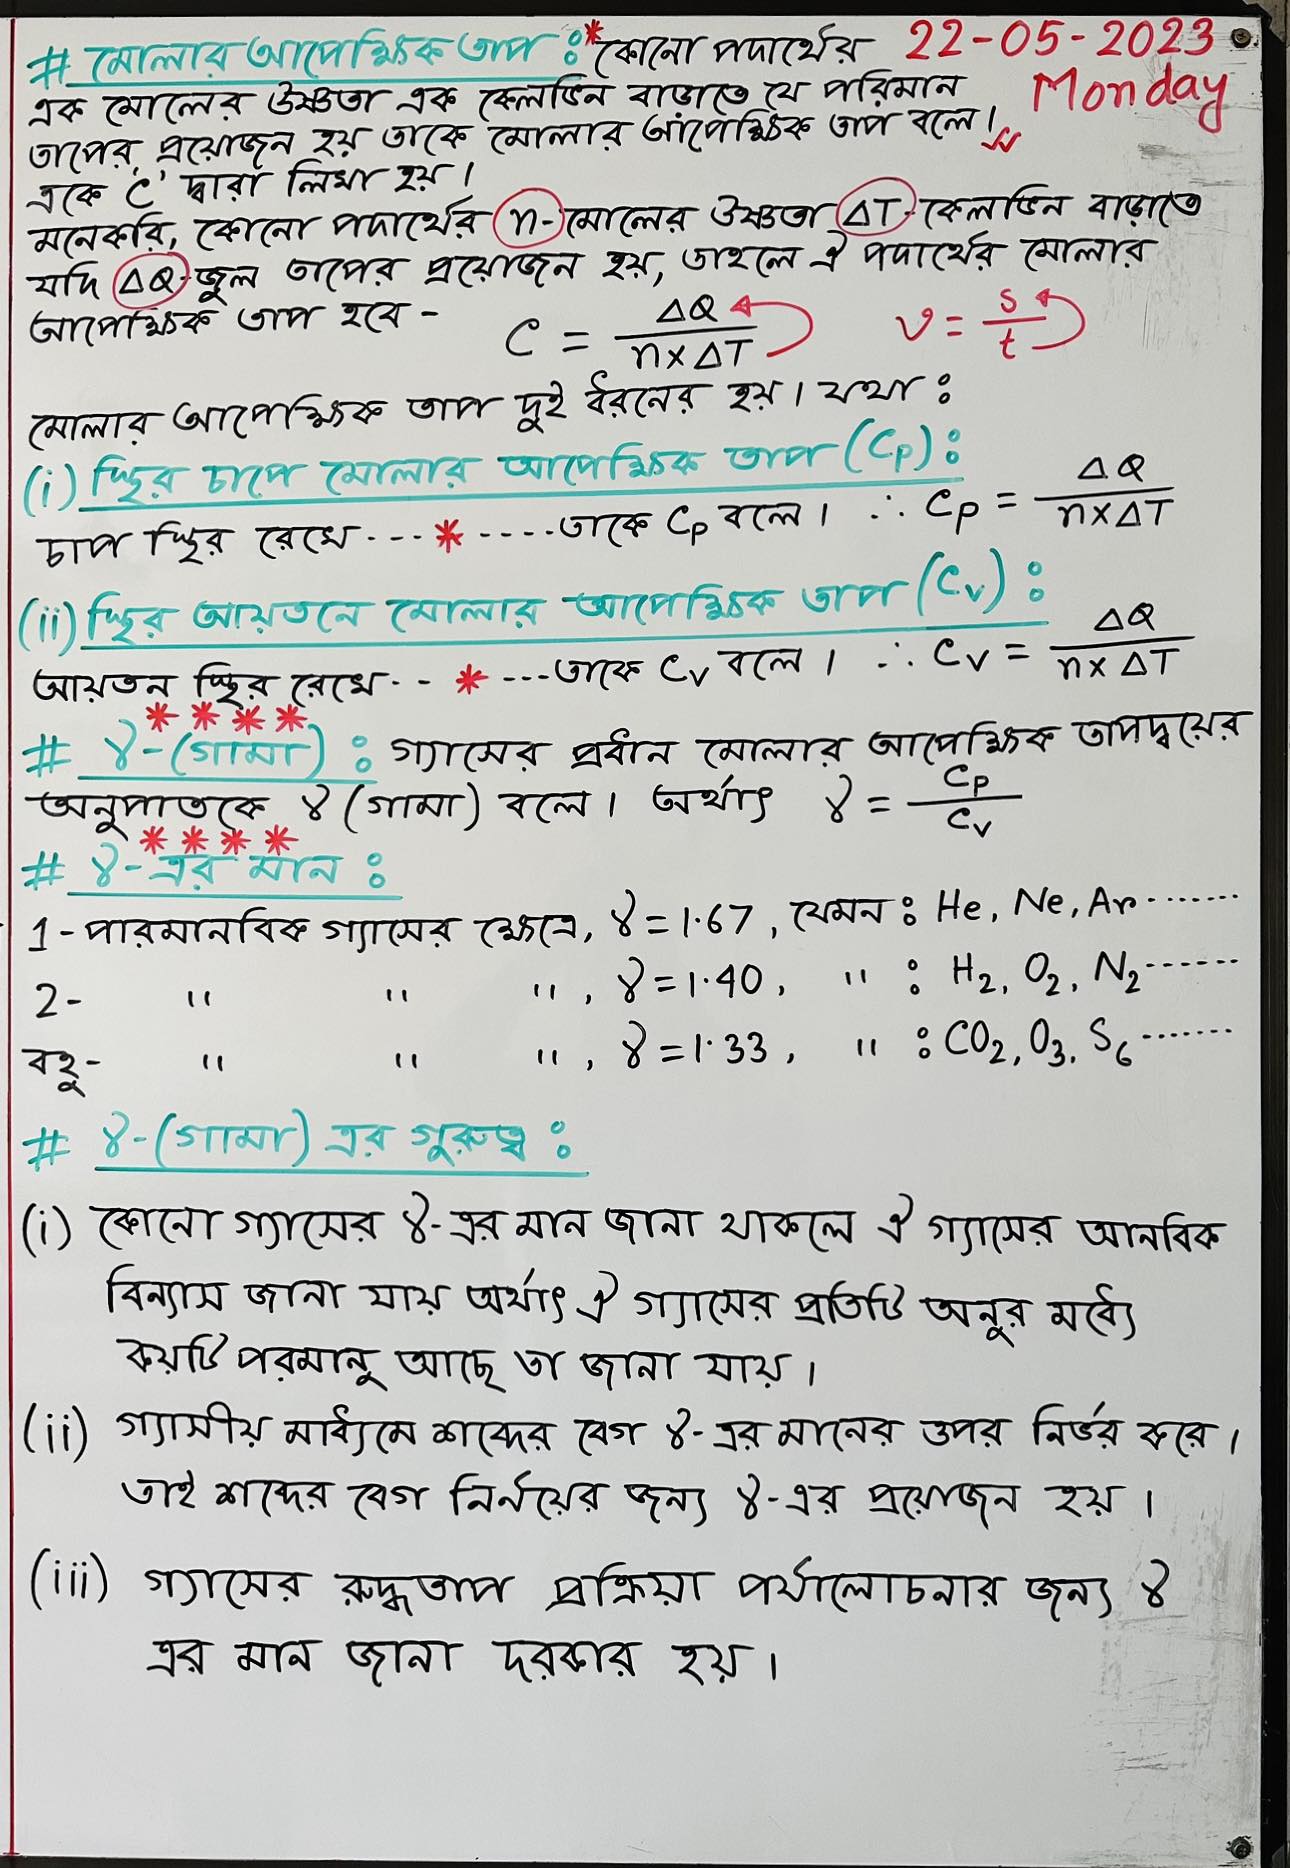 # মোলার আপেক্ষিক তাপ :* কোনো পদার্থের 22-05-2023
Monday
এক মোলের উষ্ণতা এক কেলভিন বাড়াতে যে পরিমান
তাপের প্রয়োজন হয় তাকে মোলার আপেক্ষিক তাপ বলে।
একে 'C' দ্বারা লিখা হয়।
মনেকরি, কোনো পদার্থের n-মোলের উষ্ণতা ΔT-কেলভিন বাড়াতে
যদি ΔQ-জুল তাপের প্রয়োজন হয়, তাহলে ঐ পদার্থের মোলার
আপেক্ষিক তাপ হবে - C = ΔQ / n×ΔT v = s / t
মোলার আপেক্ষিক তাপ দুই ধরনের হয়। যথা :
(i) স্থির চাপে মোলার আপেক্ষিক তাপ (Cp) :
চাপ স্থির রেখে --- * ----- তাকে Cp বলে। ∴ Cp = ΔQ / n×ΔT
(ii) স্থির আয়তনে মোলার আপেক্ষিক তাপ (Cv) :
আয়তন স্থির রেখে -- * --- তাকে Cv বলে। ∴ Cv = ΔQ / n×ΔT
* * * *
# γ-(গামা) : গ্যাসের প্রধান মোলার আপেক্ষিক তাপদ্বয়ের
অনুপাতকে γ (গামা) বলে। অর্থাৎ γ = Cp / Cv
* * * *
# γ-এর মান :
1-পারমানবিক গ্যাসের ক্ষেত্রে, γ = 1.67, যেমন : He, Ne, Ar -------
2- " " ", γ = 1.40, " : H₂, O₂, N₂ ------
বহু- " " ", γ = 1.33, " : CO₂, O₃, S₆ -------
# γ-(গামা) এর গুরুত্ব :
(i) কোনো গ্যাসের γ-এর মান জানা থাকলে ঐ গ্যাসের আনবিক
বিন্যাস জানা যায় অর্থাৎ ঐ গ্যাসের প্রতিটি অনুর মধ্যে
কয়টি পরমানু আছে তা জানা যায়।
(ii) গ্যাসীয় মাধ্যমে শব্দের বেগ γ-এর মানের উপর নির্ভর করে।
তাই শব্দের বেগ নির্নয়ের জন্য γ-এর প্রয়োজন হয়।
(iii) গ্যাসের রুদ্ধতাপ প্রক্রিয়া পর্যালোচনার জন্য γ
এর মান জানা দরকার হয়।